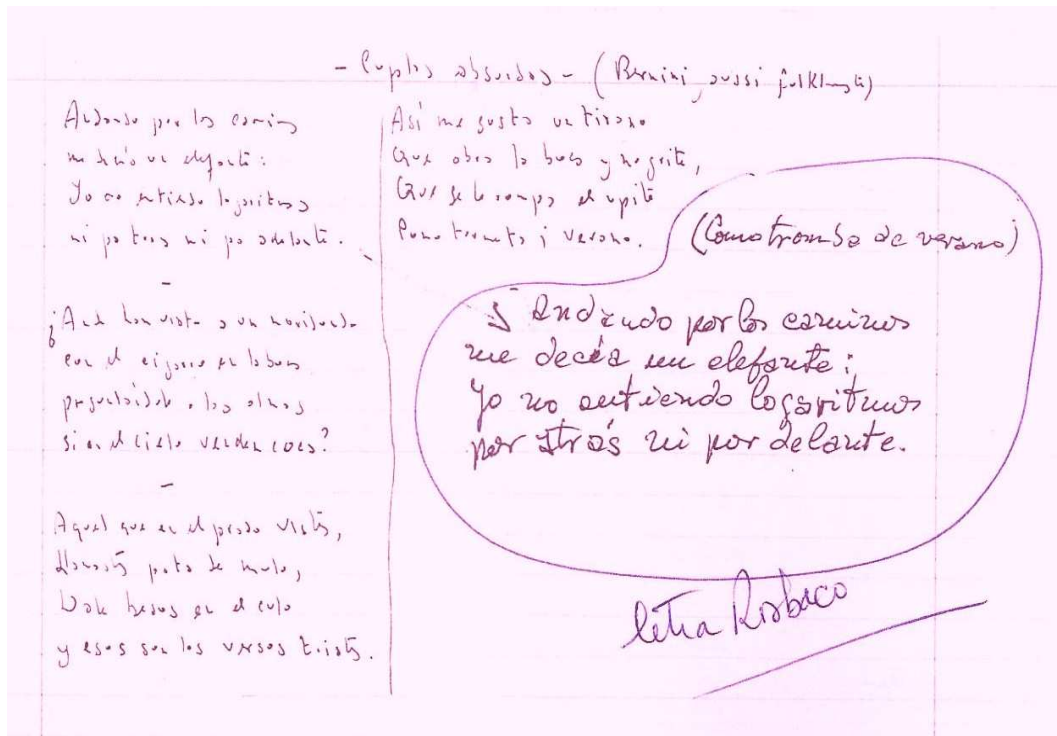 - Coplas absurdas - (Bernini, aussi folklorista)
Andando por los caminos
me decía un elefante:
Yo no entiendo logaritmos
ni po tras ni po adelante.
-
¿And han visto a un moribundo
con el cigarro en la boca
preguntándole a las almas
si en el cielo venden coca?
-
Aquel que en el prado viste,
llorando pata de mula,
Dale besos en el culo
y esos son los versos tristes.
Así me gusta un tirano
Que abra la boca y no grite,
Que se le rompa el upite
Como trometa i verano.
(Como tromba de verano)
5 Andando por los caminos
me decía un elefante:
Yo no entiendo logaritmos
por atrás ni por delante.
letra Rosbaco